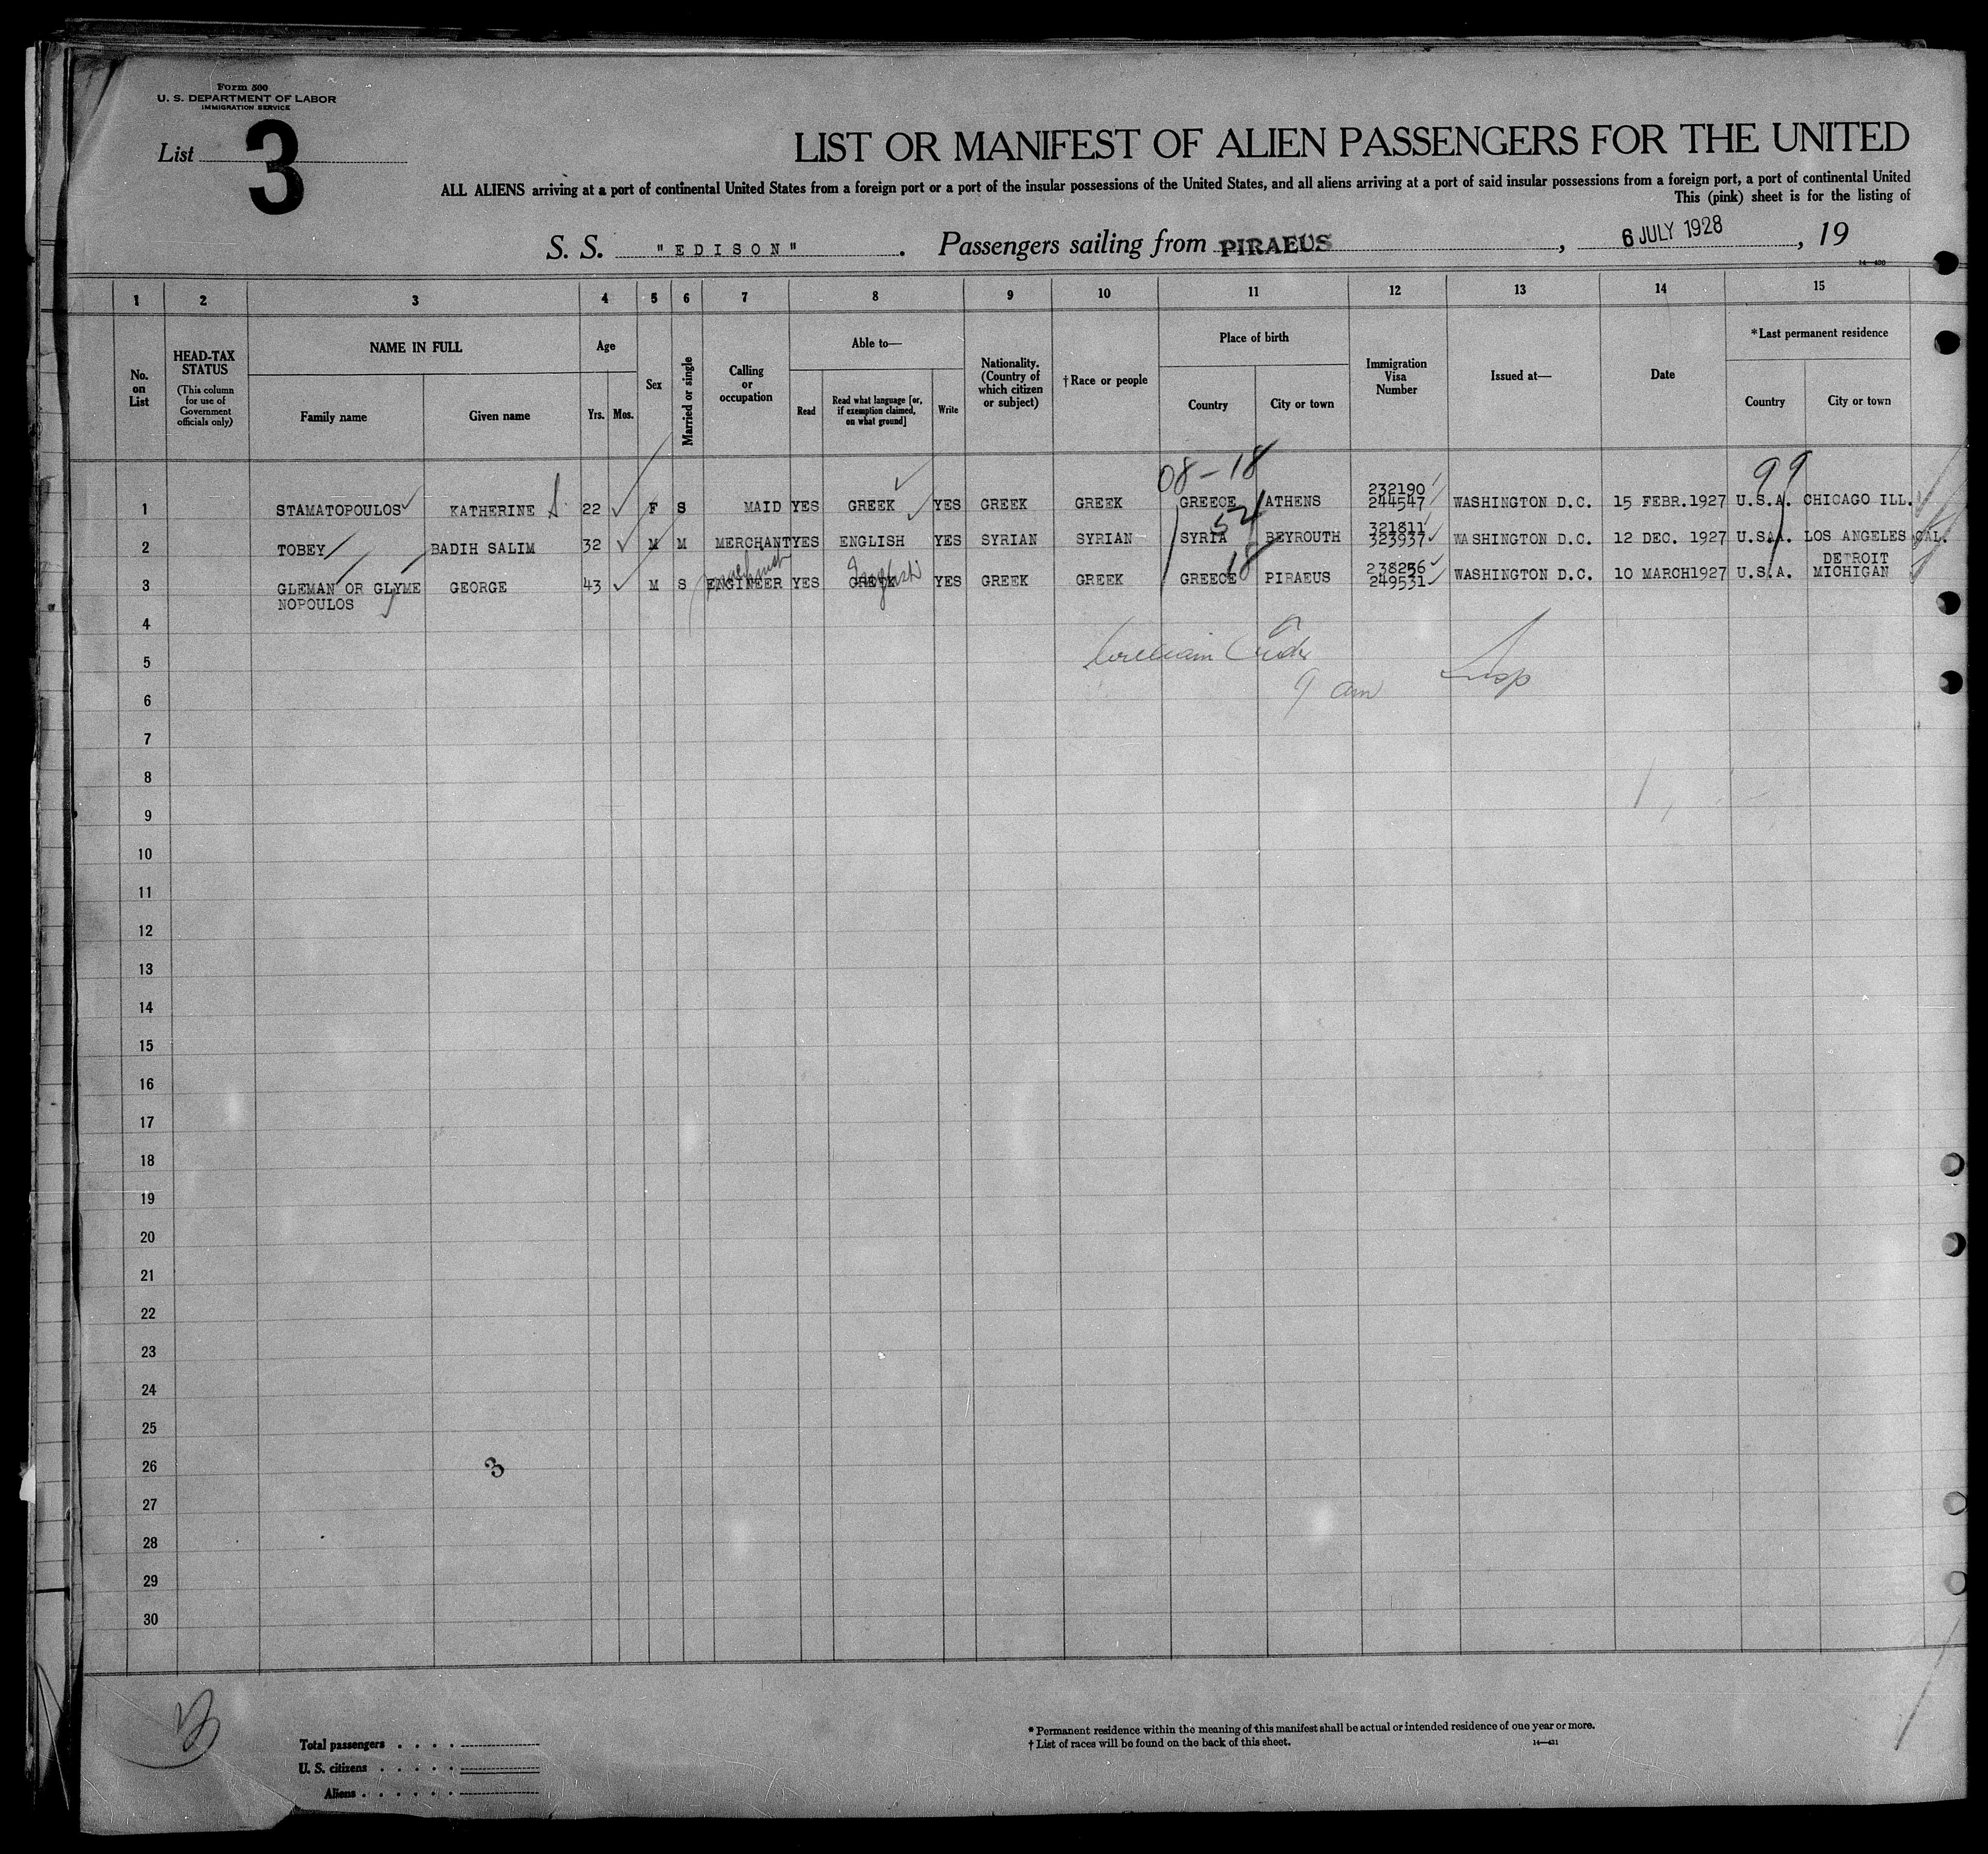 Form 500
U. S. DEPARTMENT OF LABOR
IMMIGRATION SERVICE
List 3
LIST OR MANIFEST OF ALIEN PASSENGERS FOR THE UNITED
ALL ALIENS arriving at a port of continental United States from a foreign port or a port of the insular possessions of the United States, and all aliens arriving at a port of said insular possessions from a foreign port, a port of continental United
This (pink) sheet is for the listing of
S. S. "EDISON". Passengers sailing from PIRAEUS, 6 JULY 1928, 19
14—430
1 2 3 4 5 6 7 8 9 10 11 12 13 14 15
No. on List
HEAD-TAX STATUS
(This column for use of Government officials only)
NAME IN FULL
Family name Given name
Age
Yrs. Mos.
Sex
Married or single
Calling or occupation
Able to—
Read
Read what language [or, if exemption claimed, on what ground]
Write
Nationality. (Country of which citizen or subject)
†Race or people
Place of birth
Country City or town
Immigration Visa Number
Issued at—
Date
*Last permanent residence
Country City or town
08-18
99
232190
1 STAMATOPOULOS KATHERINE 22 F S MAID YES GREEK YES GREEK GREEK GREECE ATHENS 244547 WASHINGTON D.C. 15 FEBR.1927 U.S.A. CHICAGO ILL.
52
321811
2 TOBEY BADIH SALIM 32 M M MERCHANT YES ENGLISH YES SYRIAN SYRIAN SYRIA BEYROUTH 323937 WASHINGTON D.C. 12 DEC. 1927 U.S.A. LOS ANGELES CAL.
machinist English 18
238256 DETROIT
3 GLEMAN OR GLYME GEORGE 43 M S ENGINEER YES GREEK YES GREEK GREEK GREECE PIRAEUS 249531 WASHINGTON D.C. 10 MARCH1927 U.S.A. MICHIGAN
NOPOULOS
4
5 William Insp
6 9 am
7
8
9
10
11
12
13
14
15
16
17
18
19
20
21
22
23
24
25
26 3
27
28
29
30
Total passengers
U. S. citizens
Aliens
* Permanent residence within the meaning of this manifest shall be actual or intended residence of one year or more.
† List of races will be found on the back of this sheet.
14—431